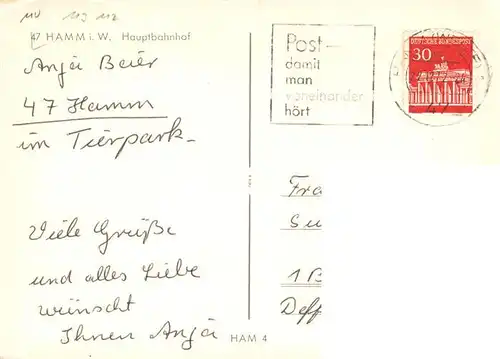 110 113 112
47 HAMM i. W. Hauptbahnhof
Anja Beier
47 Hamm
im Tierpark
Viele Grüße
und alles Liebe
wünscht
Ihnen Anja
HAM 4
Post –
damit
man
voneinander
hört
DEUTSCHE BUNDESPOST
30
47
Fra
Su
1 B
Deff